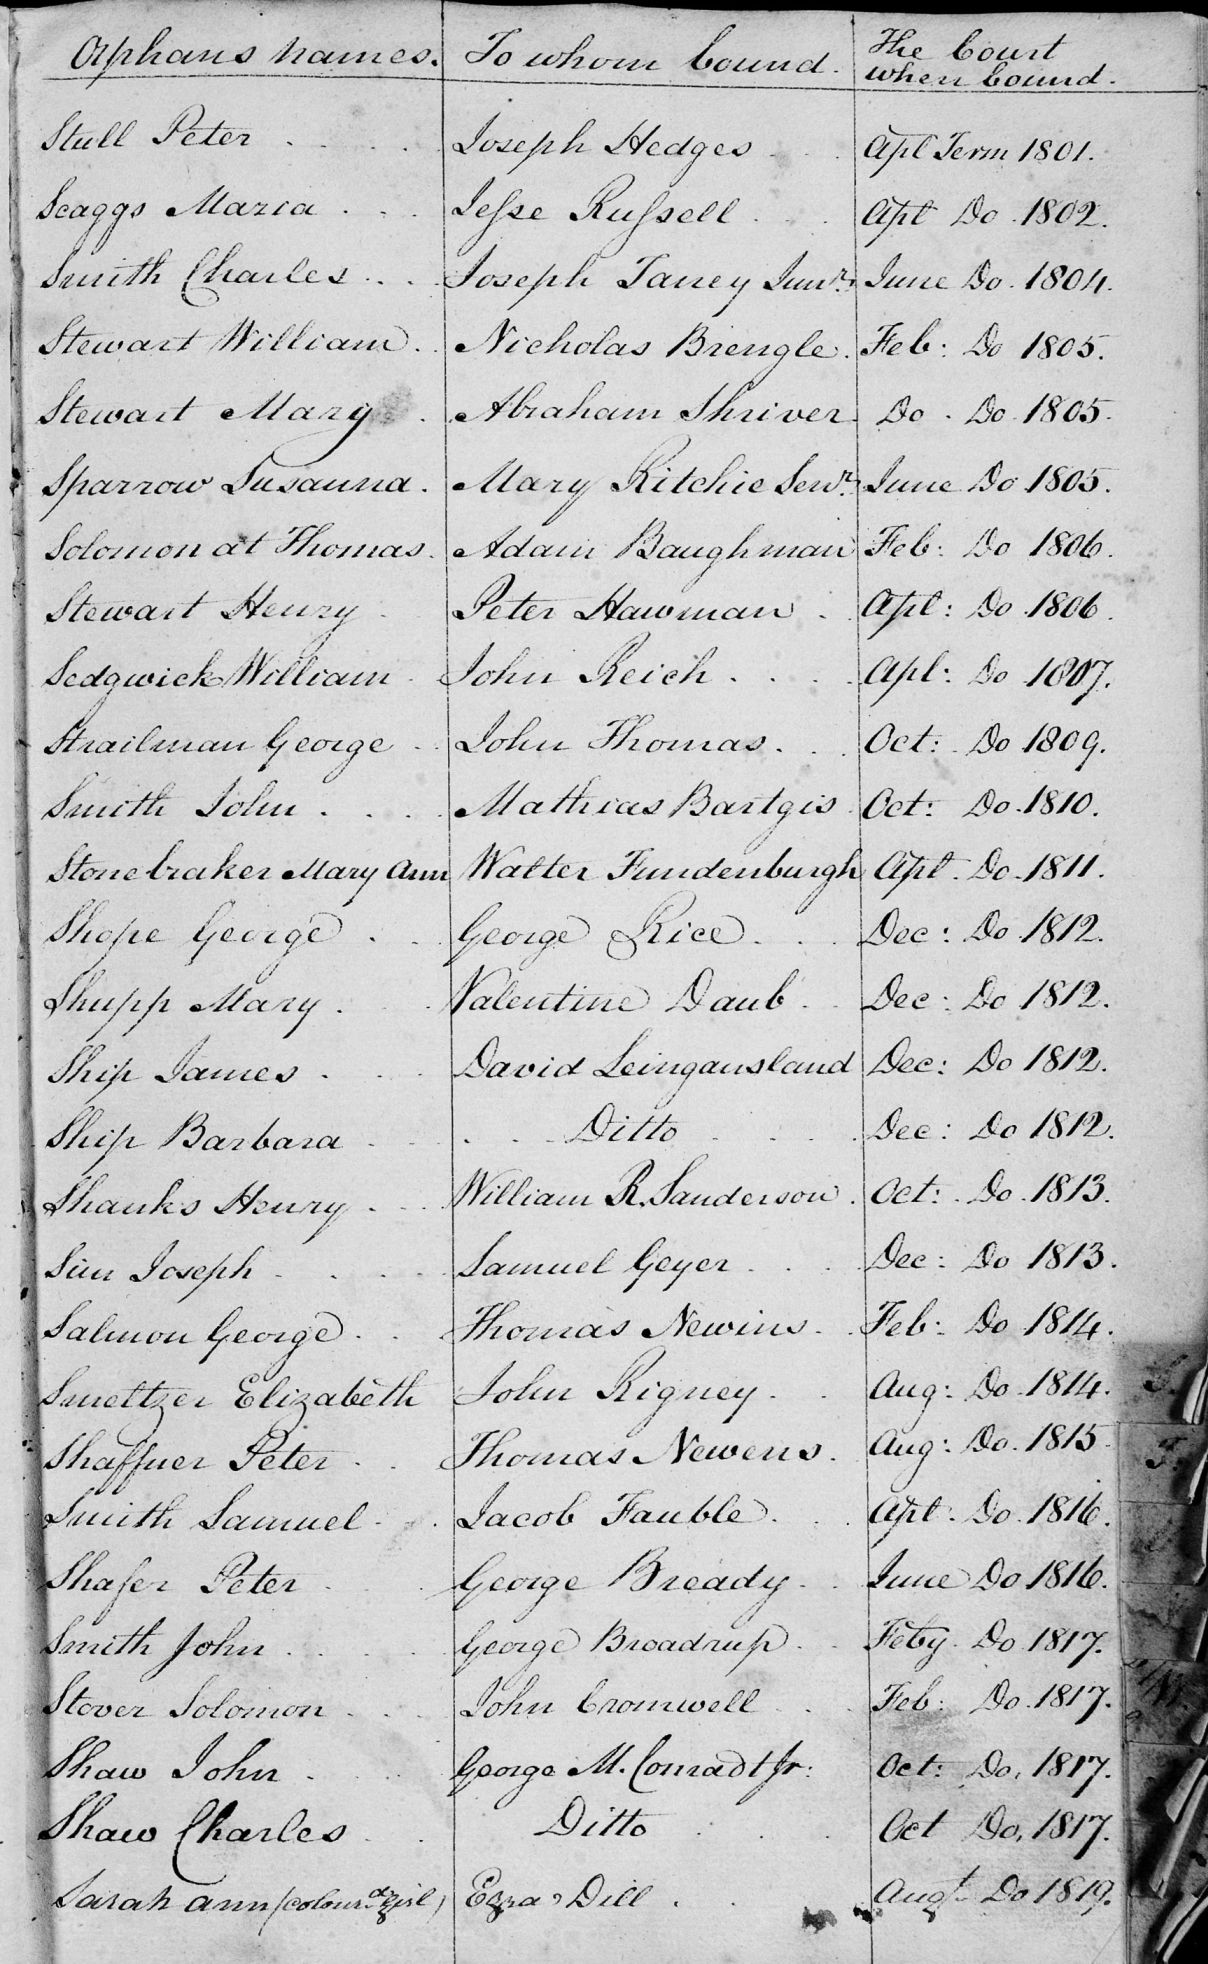 Orphans names. To whom bound. The Court when bound.
Stull Peter Joseph Hedges Apl Term 1801.
Scaggs Maria Jesse Russell Apl Do 1802.
Smith Charles Joseph Taney Junr. June Do. 1804.
Stewart William Nicholas Brengle. Feb: Do 1805.
Stewart Mary Abraham Shriver Do. Do 1805.
Sparrow Susanna. Mary Ritchie Senr. June Do 1805.
Solomon at Thomas. Adam Baughman Feb: Do 1806.
Stewart Henry Peter Hawman Apl: Do 1806.
Sedgwick William John Reich Apl: Do 1807.
Strailman George John Thomas Oct: Do 1809.
Smith John Mathias Bartgis Oct: Do. 1810.
Stonebraker Mary Ann Walter Fundenburgh Apl. Do. 1811.
Shope George George Rice Dec: Do. 1812.
Shupp Mary Valentine Daub Dec: Do 1812.
Ship James David Leingansland Dec: Do 1812.
Ship Barbara Ditto Dec: Do 1812.
Shanks Henry William R. Sanderson Oct: Do. 1813.
Sim Joseph Samuel Geyer Dec: Do 1813.
Salmon George Thomas Newins Feb: Do 1814.
Smeltzer Elizabeth John Rigney Aug: Do. 1814.
Shaffner Peter Thomas Newens Aug: Do. 1815.
Smith Samuel Jacob Fauble Apl: Do. 1816.
Shafer Peter George Bready June Do 1816.
Smith John George Broadrup Feby Do 1817.
Stover Solomon John Cromwell Feb: Do. 1817.
Shaw John George M. Conradt Jr: Oct: Do. 1817.
Shaw Charles Ditto Oct Do. 1817.
Sarah ann (colourd girl) Ezra Dill Augt Do 1819.